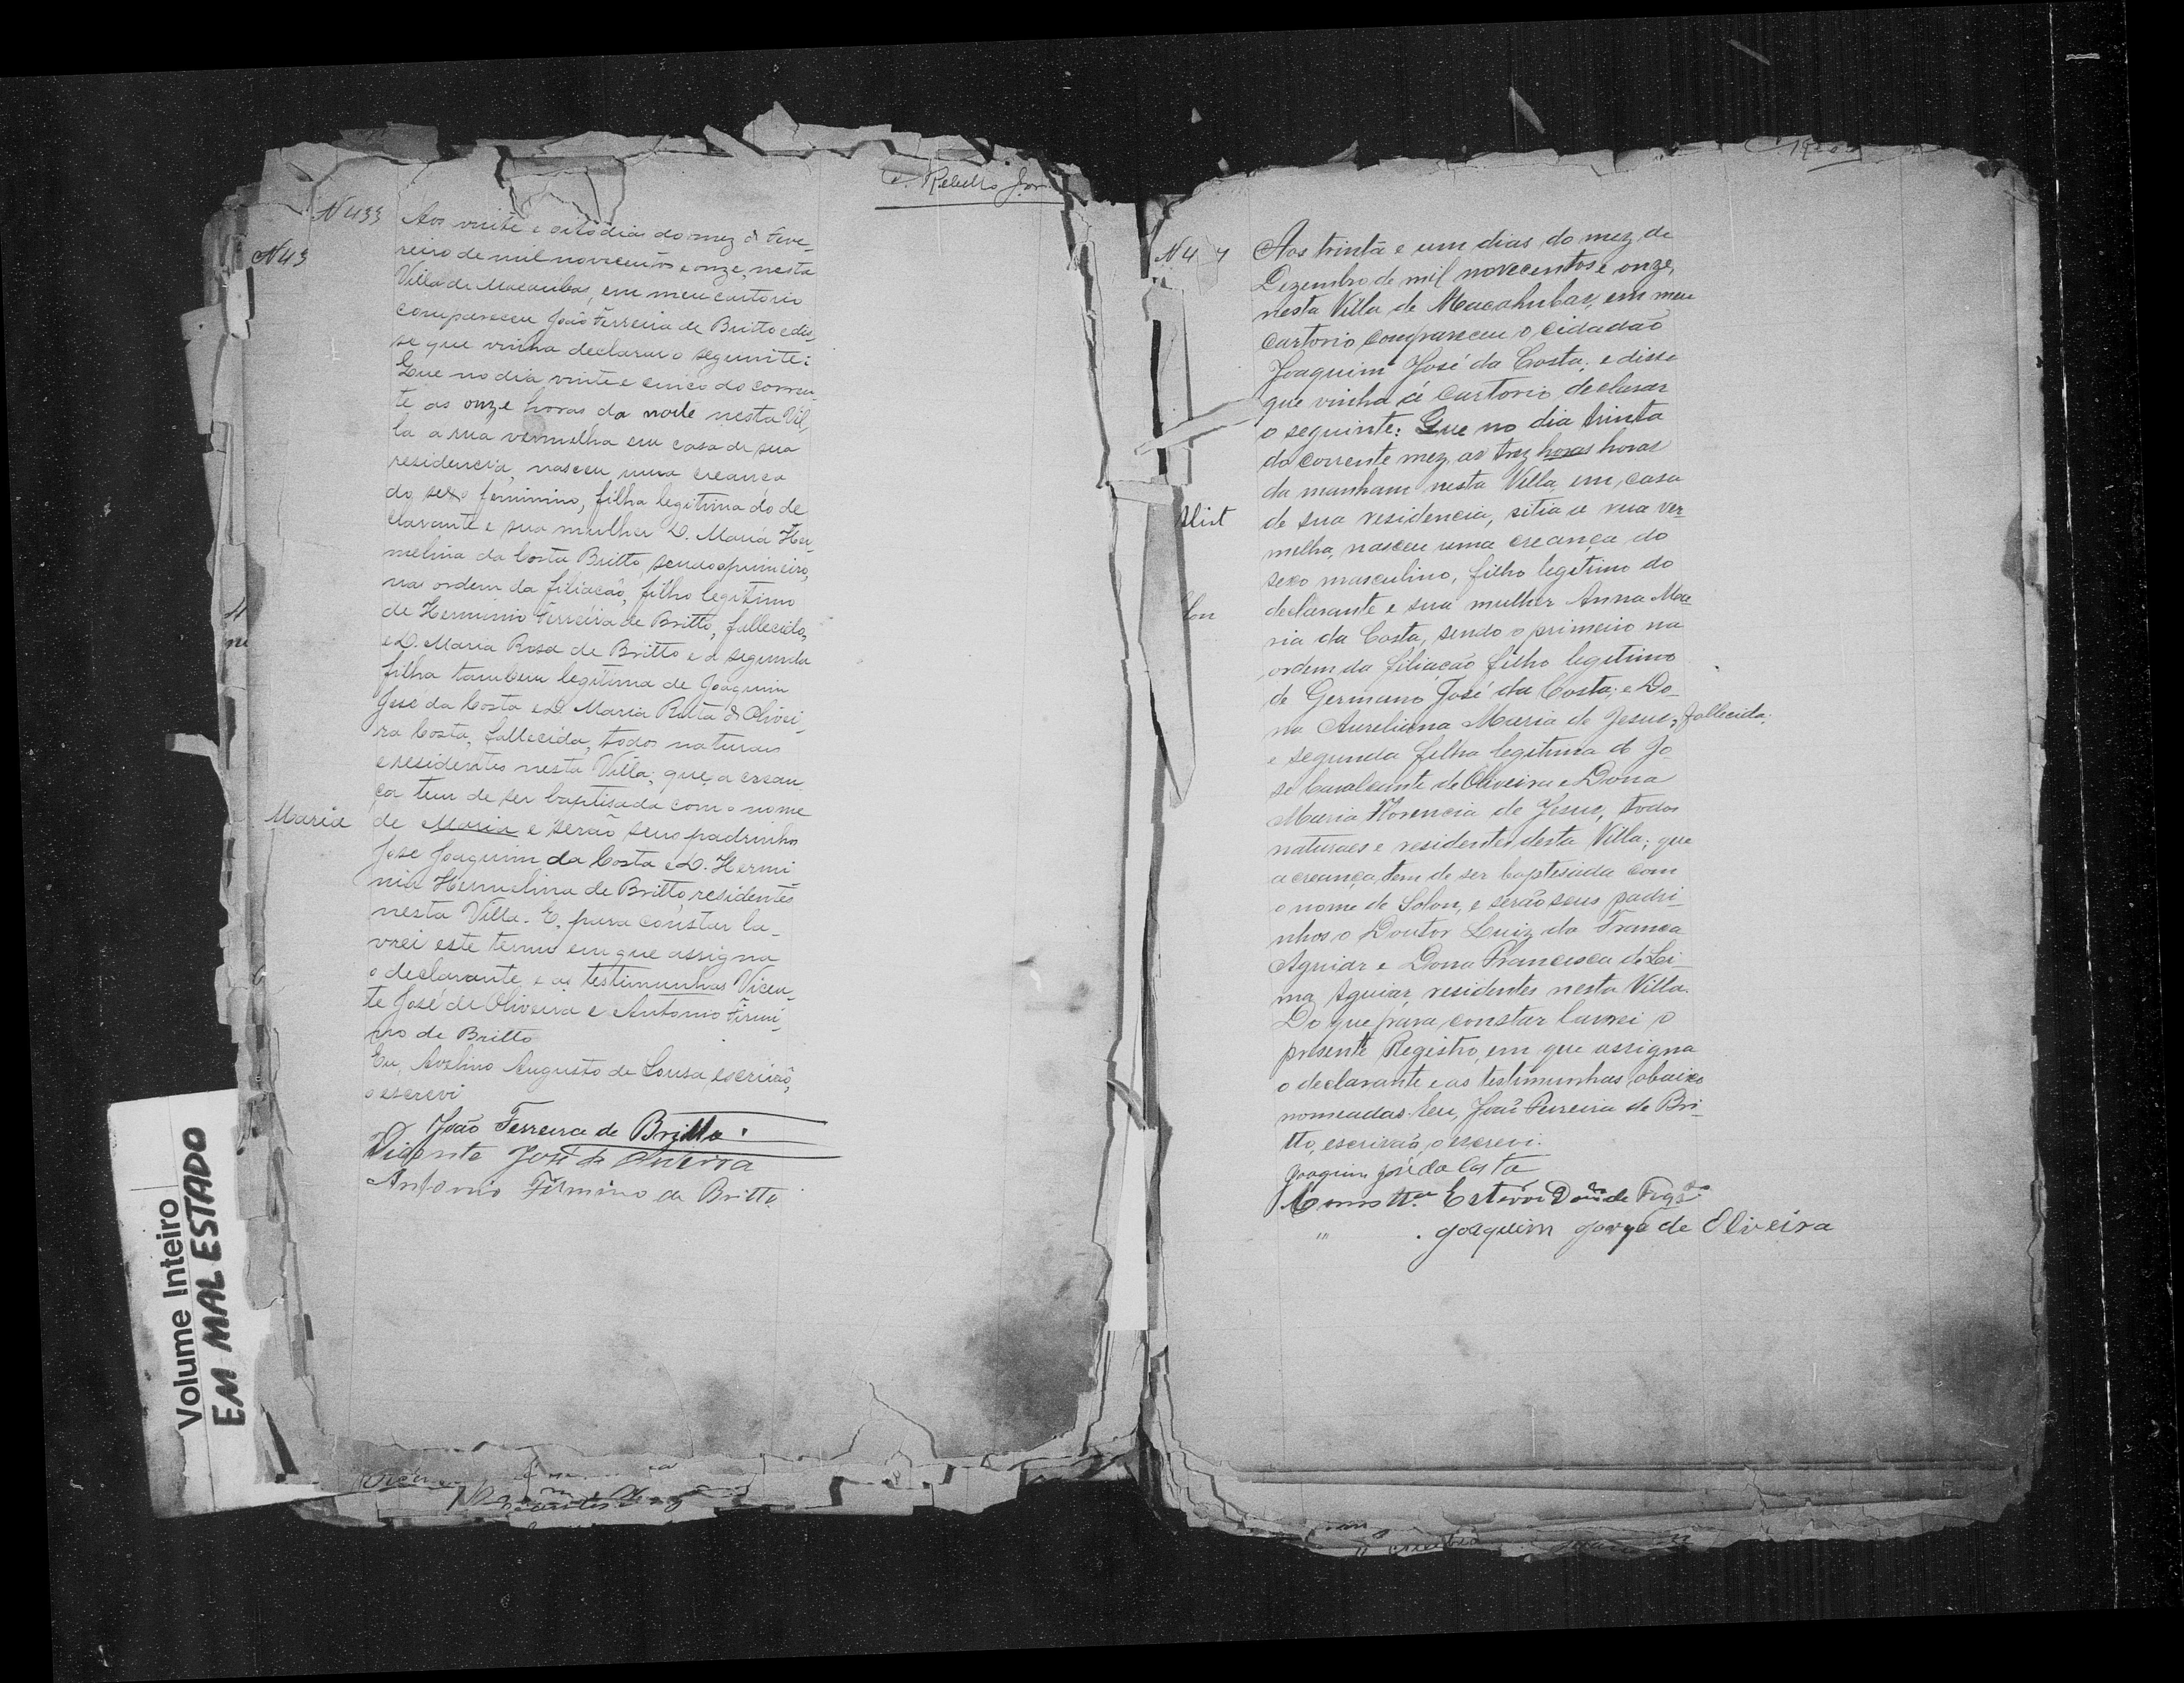 Rebello Jor.
N 433
N 43
Aos vinte e oito dias do mez de Feve-
reiro de mil novecentos e onze, nesta
Villa de Macaubas, em meu cartorio
compareceu João Ferreira de Britto e dis-
se que vinha declarar o seguinte:
Que no dia vinte e cinco do corren-
te as onze horas da noite nesta Vil-
la a rua vermelha em casa de sua
residencia, nasceu uma creança
do sexo feminino, filha legitima do de
clarante e sua mulher D. Maria Her-
melina da Costa Britto, sendo o primeiro,
na ordem da filiacão, filho legitimo
de Herminio Ferreira de Britto, fallecido,
e D. Maria Rosa de Britto e a segunda
filha tambem legitima de Joaquim
José da Costa e D. Maria Ritta de Olivei-
ra Costa, fallecida, todos naturaes
e residentes nesta Villa; que a crean
ça tem de ser baptisada com o nome
Maria
de Maria e serão seus padrinhos
José Joaquim da Costa e D. Hermi
nia Hermelina de Britto, residentes
nesta Villa. E, para constar la-
vrei este termo em que assigna
o declarante e as testimunhas Vicen-
te José de Oliveira e Antonio Firmi-
no de Britto
Eu, Avelino Augusto de Sousa, escrivão,
o escrevi
João Ferreira de Britto.
Vicente José de Oliveira
Antonio Firmino de Britto.
Volume Inteiro
EM MAL ESTADO
N 4 4
Aos trinta e um dias do mez de
Dezembro de mil novecentos e onze,
nesta Villa de Macahubas, em meu
cartorio compareceu o cidadão
Joaquim José da Costa; e disse
que vinha á cartorio declarar
o seguinte: Que no dia trinta
do corrente mez, as trez horas horas
da manham nesta Villa, em casa
Alist
de sua residencia, sitia a rua ver-
melha, nasceu uma creança do
sexo masculino, filho legitimo do
lon
declarante e sua mulher Anna Ma-
ria da Costa, sendo o primeiro na
ordem da filiacão filho legitimo
de Germano José da Costa; e Do-
na Aureliana Maria de Jesus, fallecida;
e segunda filha legitima de Jo
se Cavalcante de Oliveira e Dona
Maria Florencia de Jesus, todos
naturaes e residentes desta Villa; que
a creança, tem de ser baptisada com
o nome de Solon, e serão seus padri-
nhos o Doutor Luiz da Franca
Aguiar e Dona Francisca de Li-
ma Aguiar, residentes nesta Villa.
Do que para constar lavrei o
presente Registro, em que assigna
o declarante e as testimunhas abaixo
nomeadas. Eeu, João Ferreira de Bri-
tto, escrivão, o escrevi.
Joaquim José da Costa
Como tta.
" . Joaquim Jorge de Oliveira